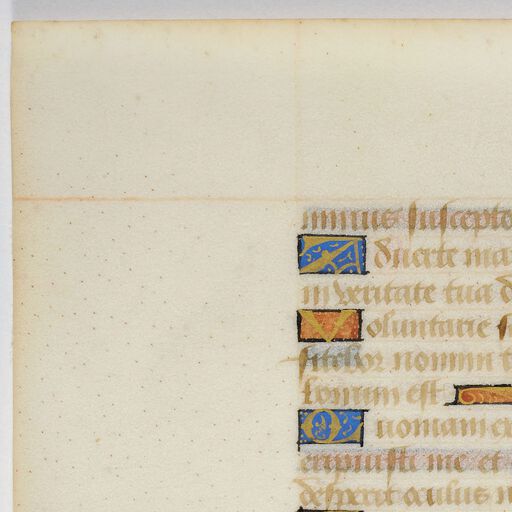 minus suscepto
Auerte ma
in veritate tua d
Voluntarie s
fitebor nomini t
bonum est
Quoniam ex
eripuisti me et
despexit oculus m